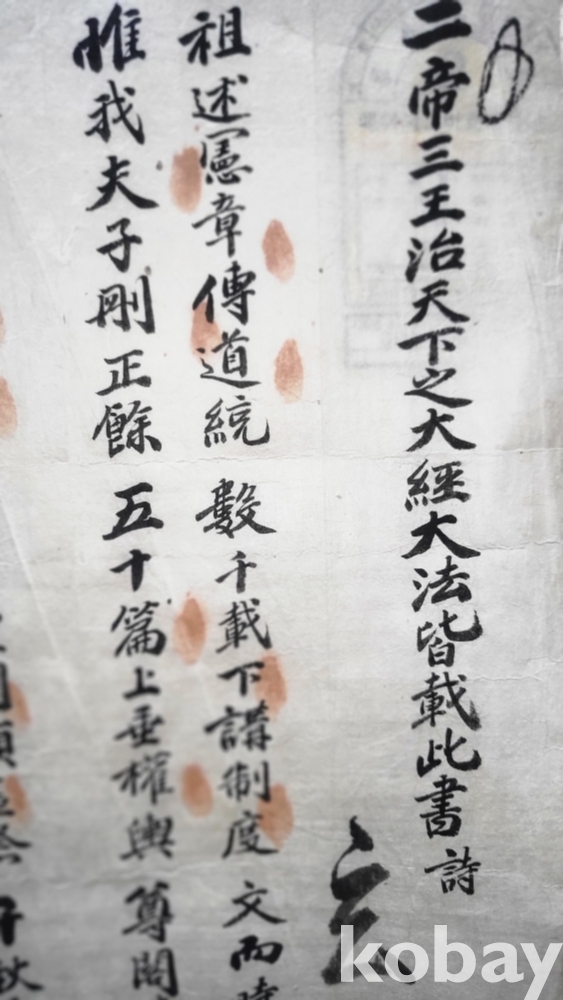 二帝三王治天下之大經大法皆載此書 詩
祖述憲章傳道統 數千載下講制度 文而
惟我夫子剛正餘 五十篇上垂權輿 尊閣
kobay